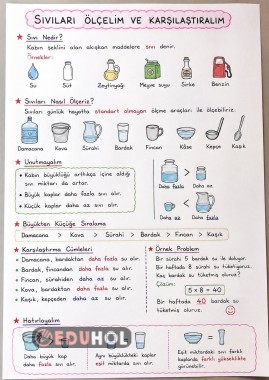 SIVILARI ÖLÇELİM VE KARŞILAŞTIRALIM
Sıvı Nedir?
Kabın şeklini alan akışkan maddelere sıvı denir.
Örnekler:
Su Süt Zeytinyağı Meyve suyu Sirke Benzin
Sıvıları Nasıl Ölçeriz?
Sıvıları günlük hayatta standart olmayan ölçme araçları ile ölçebiliriz.
Damacana Kova Sürahi Bardak Fincan Kâse Kepçe Kaşık
Unutmayalım
• Kabın büyüklüğü arttıkça içine aldığı
sıvı miktarı da artar.
• Büyük kaplar daha fazla sıvı alır.
• Küçük kaplar daha az sıvı alır.
>
Daha fazla Daha az
<
Daha az Daha fazla
Büyükten Küçüğe Sıralama
Damacana > Kova > Sürahi > Bardak > Fincan > Kaşık
Karşılaştırma Cümleleri
• Damacana, bardaktan daha fazla su alır.
• Bardak, fincandan daha fazla su alır.
• Fincan, sürahiden daha az su alır.
• Kova, bardaktan daha fazla su alır.
• Kaşık, kepçeden daha az su alır.
Örnek Problem
Bir sürahi 5 bardak su ile doluyor.
Bir haftada 8 sürahi su tüketiyoruz.
Kaç bardak su tüketmiş oluruz?
Çözüm:
5 x 8 = 40
Bir haftada 40 bardak su
tüketmiş oluruz.
Hatırlayalım
EDUHOL
Daha büyük kap
daha fazla sıvı alır.
Aynı büyüklükteki kaplar
eşit miktarda sıvı alır.
Eşit miktardaki sıvı farklı
kaplarda farklı yükseklikte
görünebilir.